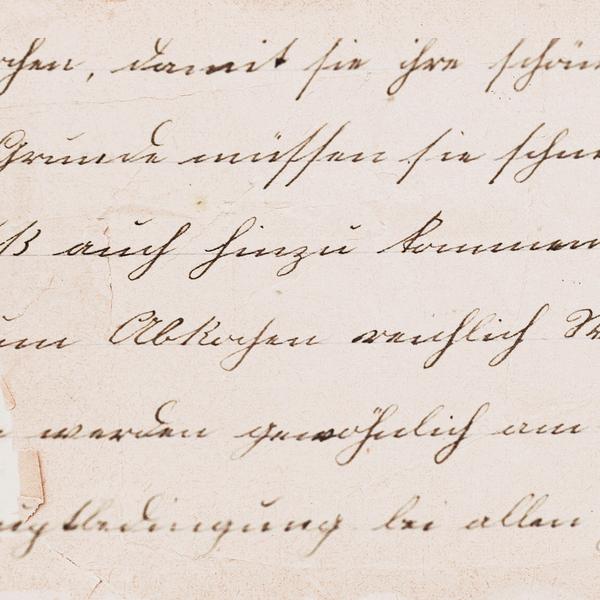 ochen, damit sie ihre schön
Grunde müssen sie schne
ß auch hinzu kommen
um Abkochen reichlich W
werden gewöhnlich am
uptbedingung bei allen